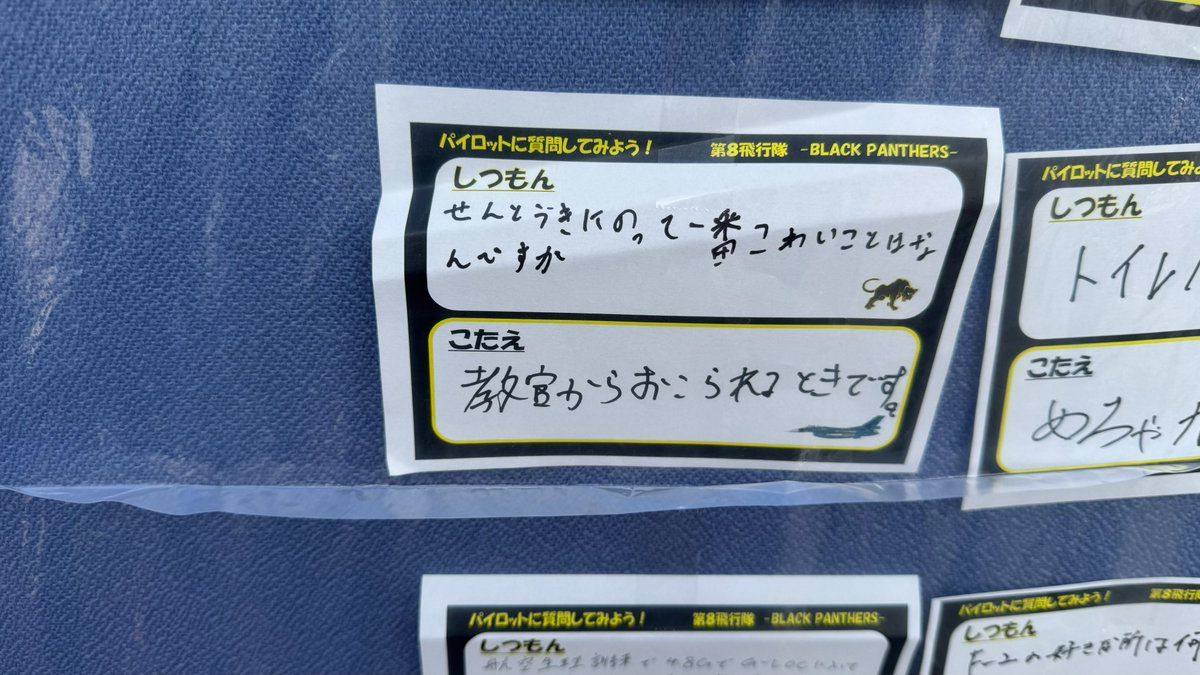 パイロットに質問してみよう！ 第8飛行隊 -BLACK PANTHERS-
しつもん
せんとうきにのって一番こわいことはな
んですか
こたえ
教官からおこられるときです。
パイロットに質問してみ
しつもん
トイレ
こたえ
めちゃ
パイロットに質問してみよう！ 第8飛行隊 -BLACK PANTHERS-
しつもん
パイロットに質問してみよう！ 第8飛行隊
しつもん
F-2の好きな所は何